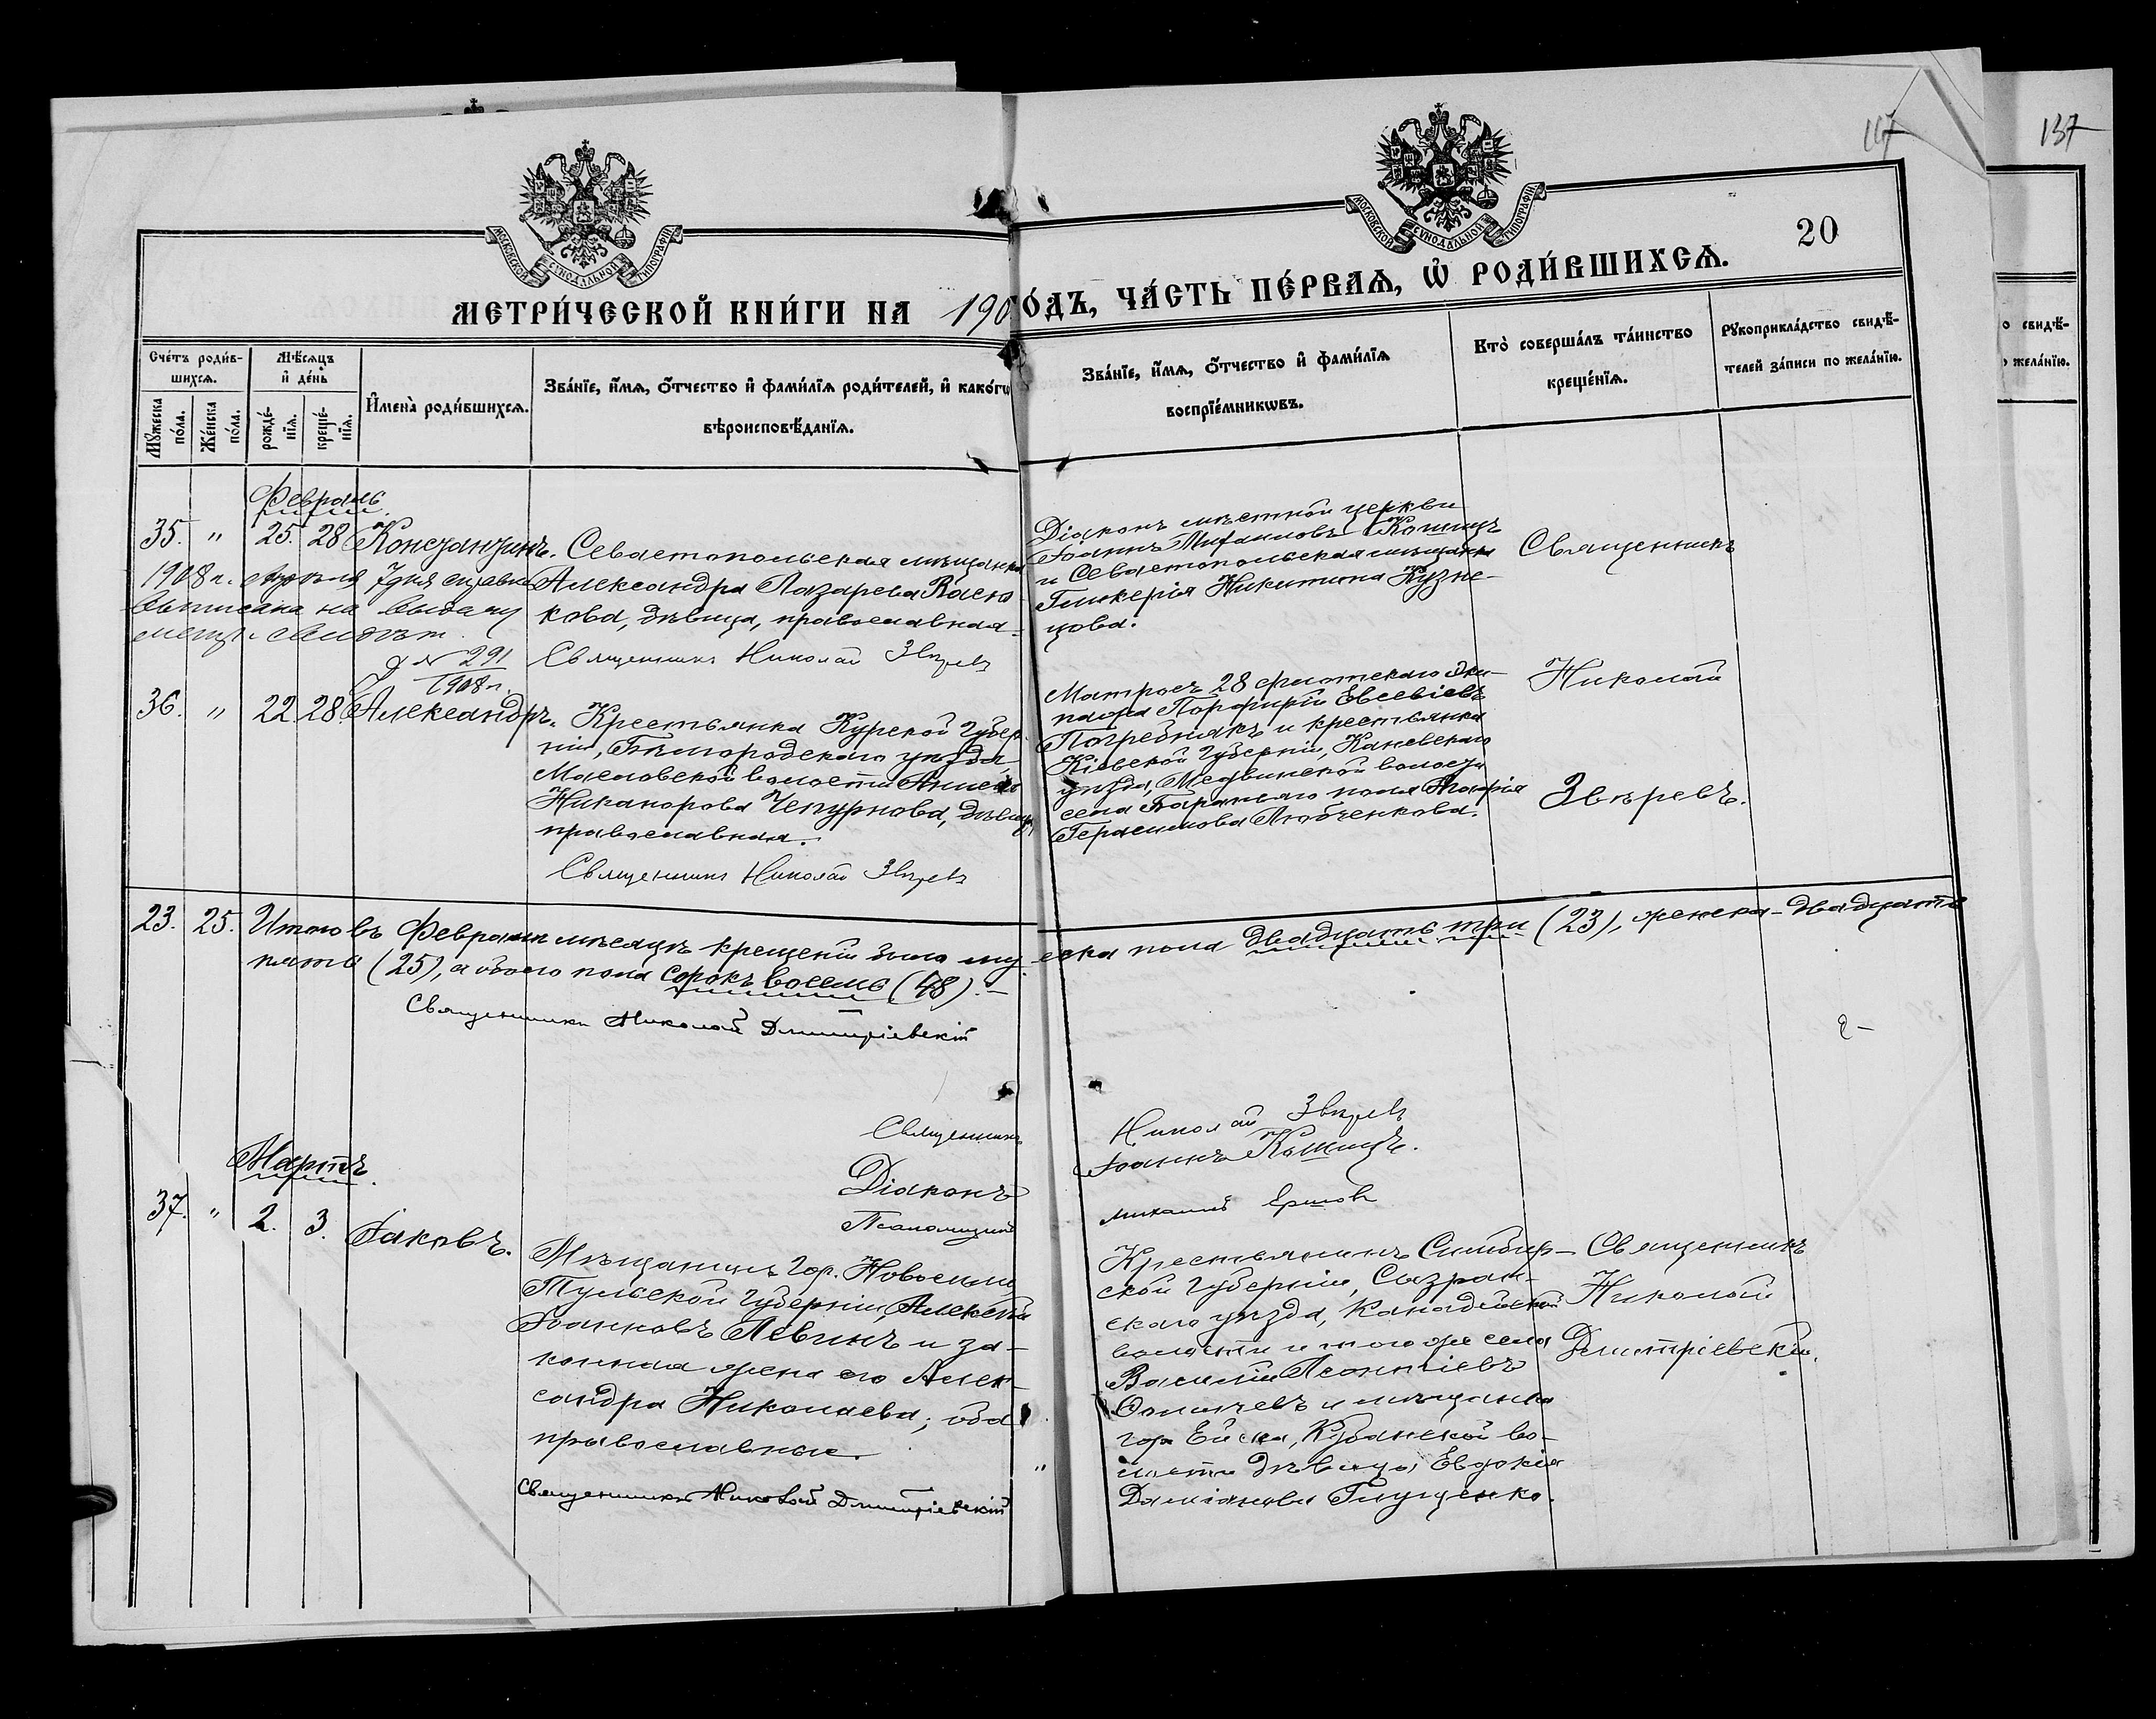 137
117
20
МОСКОВСКОЙ СѴНОДАЛЬНОЙ ТИПОГРАФІИ
МОСКОВСКОЙ СѴНОДАЛЬНОЙ ТИПОГРАФІИ
МЕТРИ́ЧЕСКОЙ КНИ́ГИ НА 190 ГО́ДЪ, ЧА́СТЬ ПЕ́РВАЯ, Ѿ РОДИ́ВШИХСЯ.
Сче́тъ роди́в-
шихся.
Му́жеска по́ла.
Же́нска по́ла.
Мѣ́сяцъ
и де́нь
рожде́-
нія.
креще́-
нія.
Имена̀ роди́вшихся.
Зва́ніе, и́мя, о́тчество и фами́лія роди́телей, и како́гѡ
вѣроисповѣ́данія.
Зва́ніе, и́мя, о́тчество и фами́лія
воспріе́мникѡвъ.
Кто̀ соверша́лъ та́инство
креще́нія.
Рꙋкоприкла́дство свидѣ́-
телей за́писи по жела́нію.
о свидѣ́-
жела́нію.
Февраль.
35. " 25. 28 Константинъ.
1908 г. Апрѣля 7 дня
выписана на выдачу
метр.
№ 291
1908 г.
Севастопольская мѣщанка
Александра Лазарева Васю-
кова, дѣвица, православная.
Священникъ Николай Звѣревъ
Діаконъ мѣстной церкви
Іоаннъ Михаиловъ Кошицъ
и Севастопольская мѣщанка
Гликерія Никитина Кузне-
цова.
Священникъ
Николай
Звѣревъ.
36. " 22. 28. Александръ.
Крестьянка Курской губер-
ніи, Бѣлгородскаго уѣзда,
Масловской волости Анисія
Никанорова Чепурнова, дѣвица,
православная.
Священникъ Николай Звѣревъ
Матросъ 28 флотскаго эки-
пажа Порфирій Евсевіевъ
Погребнякъ и крестьянка
Кіевской губерніи, Каневскаго
уѣзда, Медвинской волости
села Бараньяго поля Марія
Герасимова Любченкова.
23. 25. Итого въ Февралѣ мѣсяцѣ крещеній было мужеска пола двадцать три (23), женска - двадцать
пять (25), а обоего пола сорокъ восемь (48). -
Священникъ Николай Дмитріевскій
Священникъ Николай Звѣревъ
Діаконъ Іоаннъ Кошицъ.
Псаломщикъ Михаилъ Ершовъ
Мартъ.
37. " 2. 3. Іаковъ.
Мѣщанинъ гор. Новосиля
Тульской губерніи, Алексѣй
Іоанновъ Левинъ и за-
конная жена его Алек-
сандра Николаева; оба
православные.
Священникъ Николай Дмитріевскій
Крестьянинъ Симбир-
ской губерніи, Сызран-
скаго уѣзда, Канадейской
волости и того же села
Василій Леонтіевъ
Ѳомичевъ и мѣщанка
гор. Ейска, Кубанской во-
лости дѣвица Евдокія
Даміанова Глущенко.
Священникъ
Николай
Дмитріевскій.